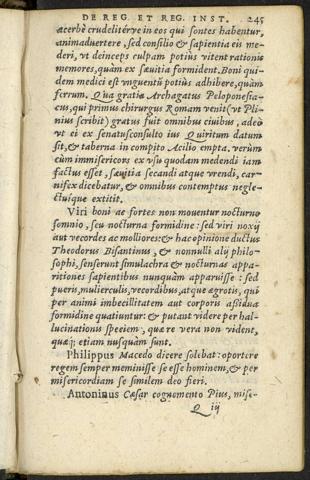 DE REG. ET REG. INST. 245
acerbè crudelitérve in eos qui sontes habentur,
animaduertere, sed consilio & sapientia eis me-
deri, vt deinceps culpam potiùs vitent rationis
memores, quàm ex sæuitia formident. Boni qui-
dem medici est vnguentũ potiùs adhibere, quàm
ferrum. Qua gratia Archagatus Peloponesia-
cus, qui primus chirurgus Romam venit (vt Pli-
nius scribit) gratus fuit omnibus ciuibus, adeò
vt ei ex senatusconsulto ius Quiritum datum
sit, & taberna in compito Acilio empta. verùm
cùm immisericors ex vsu quodam medendi iam
factus esset, sæuitia secandi atque vrendi, car-
nifex dicebatur, & omnibus contemptus negle-
ctuique extitit.
Viri boni ac fortes non mouentur nocturno
somnio, seu nocturna formidine: sed viri noxij
aut vecordes ac molliores: & hac opinione ductus
Theodorus Bisantinus, & nonnulli alij philo-
sophi, senserunt simulachra & nocturnas appa-
ritiones sapientibus nunquàm apparuisse: sed
pueris, mulierculis, vecordibus, atque ægrotis, qui
per animi imbecillitatem aut corporis aßidua
formidine quatiuntur: & putant videre per hal-
lucinationis speciem, quæ re vera non vident,
quæq; etiam nusquàm sunt.
Philippus Macedo dicere solebat: oportere
regem semper meminisse se esse hominem, & per
misericordiam se similem deo fieri.
Antoninus Cæsar cognomento Pius, mise-
Q iij